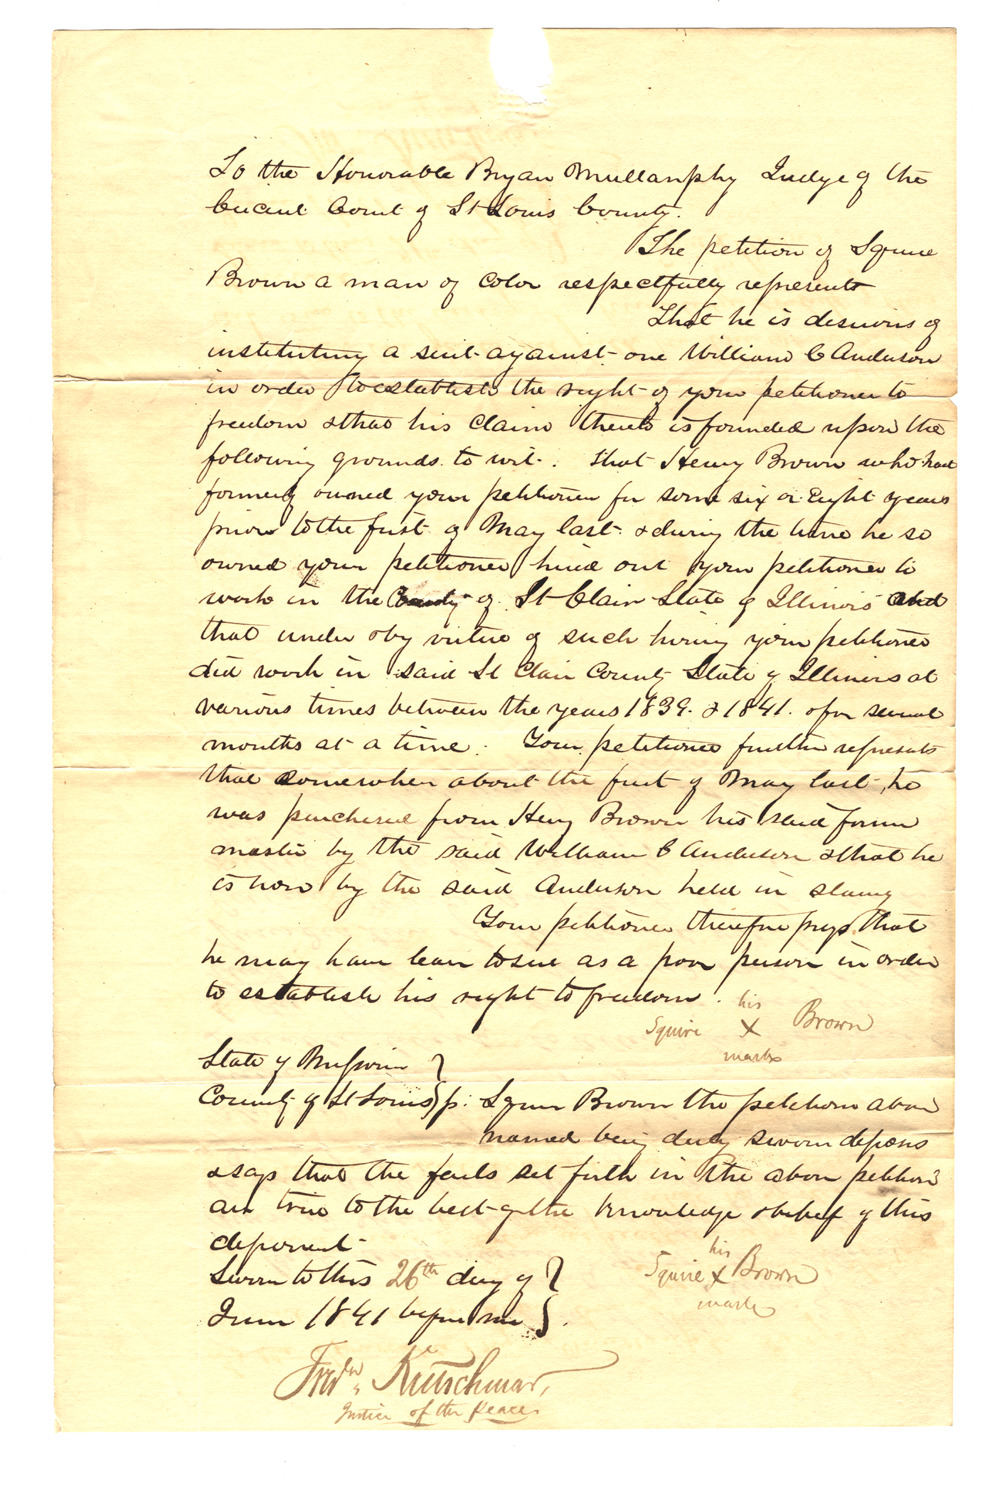 To the Honorable Bryan Mullanphy Judge of the
Circuit Court of St Louis County.
The petition of Squire
Brown a man of color respectfully represents
That he is desirous of
instituting a suit against one William C Anderson
in order to establish the right of your petitioner to
freedom & that his claim thereto is founded upon the
following grounds to wit. That Henry Brown who had
formerly owned your petitioner for some six or Eight years
prior to the first of May last & during the time he so
owned your petitioner hired out your petitioner to
work in the County of St Clair State of Illinois and
that under & by virtue of such hiring your petitioner
did work in said St Clair County State of Illinois at
various times between the years 1839. & 1841. & for several
months at a time. Your petitioner further represents
that somewhere about the first of May last, he
was purchased from Henry Brown his said former
master by the said William C Anderson & that he
is now by the said Anderson held in slavery
Your petitioner therefore prays that
he may have leave to sue as a poor person in order
to establish his right to freedom.
his
Squire X Brown
mark
State of Missouri }
County of St Louis } ss. Squire Brown the petitioner above
named being duly sworn deposes
& says that the facts set forth in the above petition
are true to the best of the knowledge & belief of this
deponent
his
Sworn to this 26th day of } Squire X Brown
mark
June 1841 before me }.
Fredw. Kretschmar,
Justice of the Peace